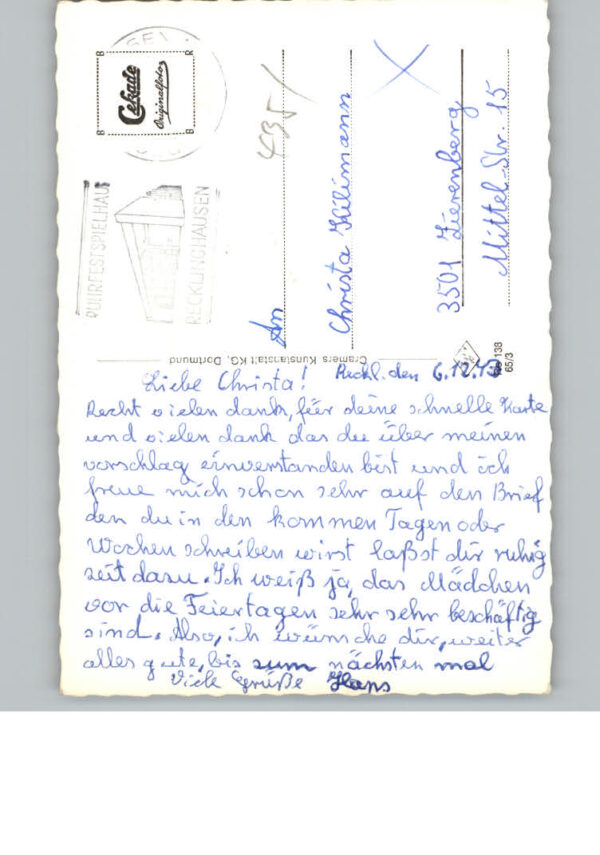 Cekade
Originalfoto
B R
B R
RUHRFESTSPIELHAUS
RECKLINGHAUSEN
435/
An
Christa
3501 Zierenberg
Mittel-Str. 15
Cramers Kunstanstalt KG, Dortmund
138
65/3
Liebe Christa! Reckl. den 6.12.
Recht vielen dank, für deine schnelle Karte
und vielen dank das du über meinen
vorschlag einverstanden bist und ich
freue mich schon sehr auf den Brief
den du in den kommen Tagen oder
Wochen schreiben wirst laßst dir ruhig
zeit dazu. Ich weiß ja, das Mädchen
vor die Feiertagen sehr sehr beschäftig
sind. Also, ich wünsche dir, weiter
alles gute, bis zum nächsten mal
Viele Grüße Hans